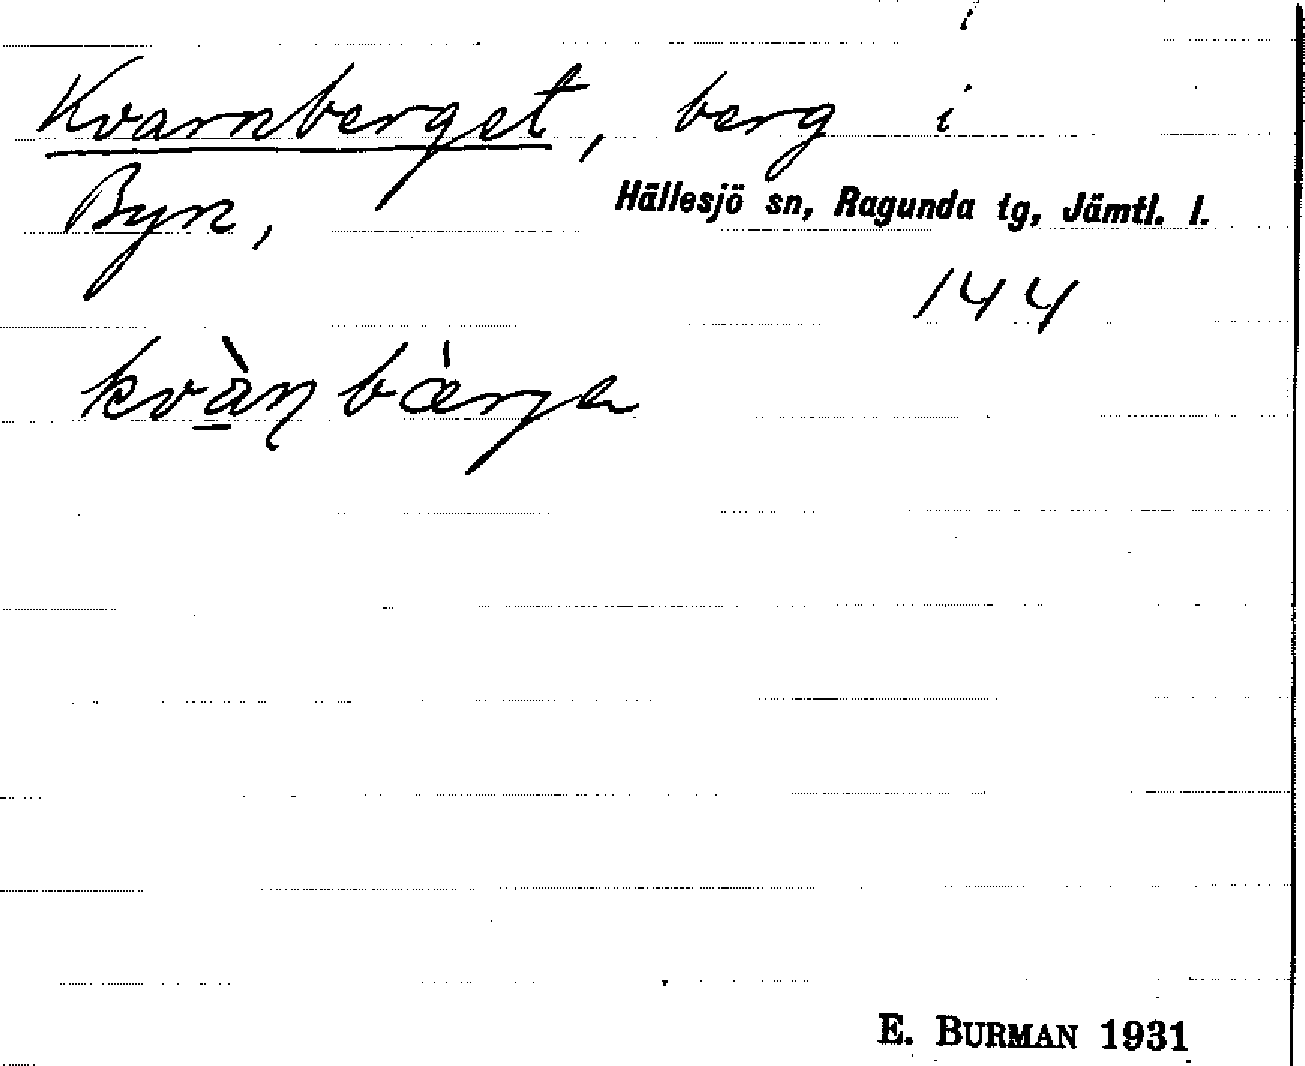 Kvarnberget, berg i
Byn, Hällesjö sn, Ragunda tg, Jämtl. l.
144
kvà̱ɳ bæ̀rjɑ
E. BURMAN 1931